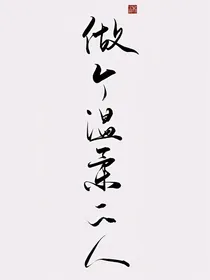 做个温柔的人